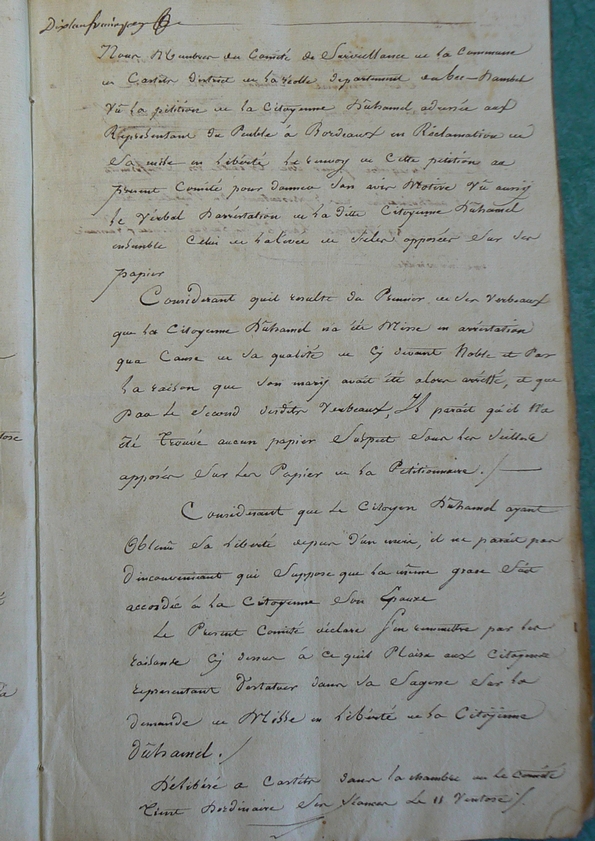 Nous Membres du Comité de Surveillance de la Commune
de Castets district de la réolle departement du bec-Dambès
Vû la pétition de la Citoyenne Duhamel adressée aux
Représentant du Peuble à Bordeaux en Réclamation de
Sa mise en Liberté Le renvoy de Cette pétition au
présent Comité pour donner Son avis Motivé Vu aussy
le Verbal Darrestation de la ditte Citoyenne Duhamel
ensemble Celui de la levée de Scelés apposés Sur Ses
papier
Considerant quil resulte du Premier de Ses Verbeaux
que la Citoyenne Duhamel n'a été Misse en arrestation
qua Cause de Sa qualité de Cy devant Noble et Par
la raison que Son mary avait été alors arretté, et que
par Le Second desdits Verbeaux, Il parait qu'il N'a
été Trouvé aucun papier Suspect Sous les Scellés
apposés Sur les Papier de la Petitionnaire ./.
Considerant que Le Citoyen Duhamel ayant
Obtenu Sa Liberté depuis D'un mois, il ne parait pas
d'inconveniant qui Suppose que la même grace Soit
accordée à la Citoyenne Son Epouse
Le Present Comité déclare S'en remettre par les
raisons Cy dessus à ce quil Plaise aux Citoyens
représentant D'estatuer dans Sa Sagesse Sur la
demande de Misse en Liberté de la Citoyenne
Duhamel ./
Délibéré a Castets dans la chambre ou le Comité
Tient Dordinaire Ses Séances Le 11 Ventose ./.